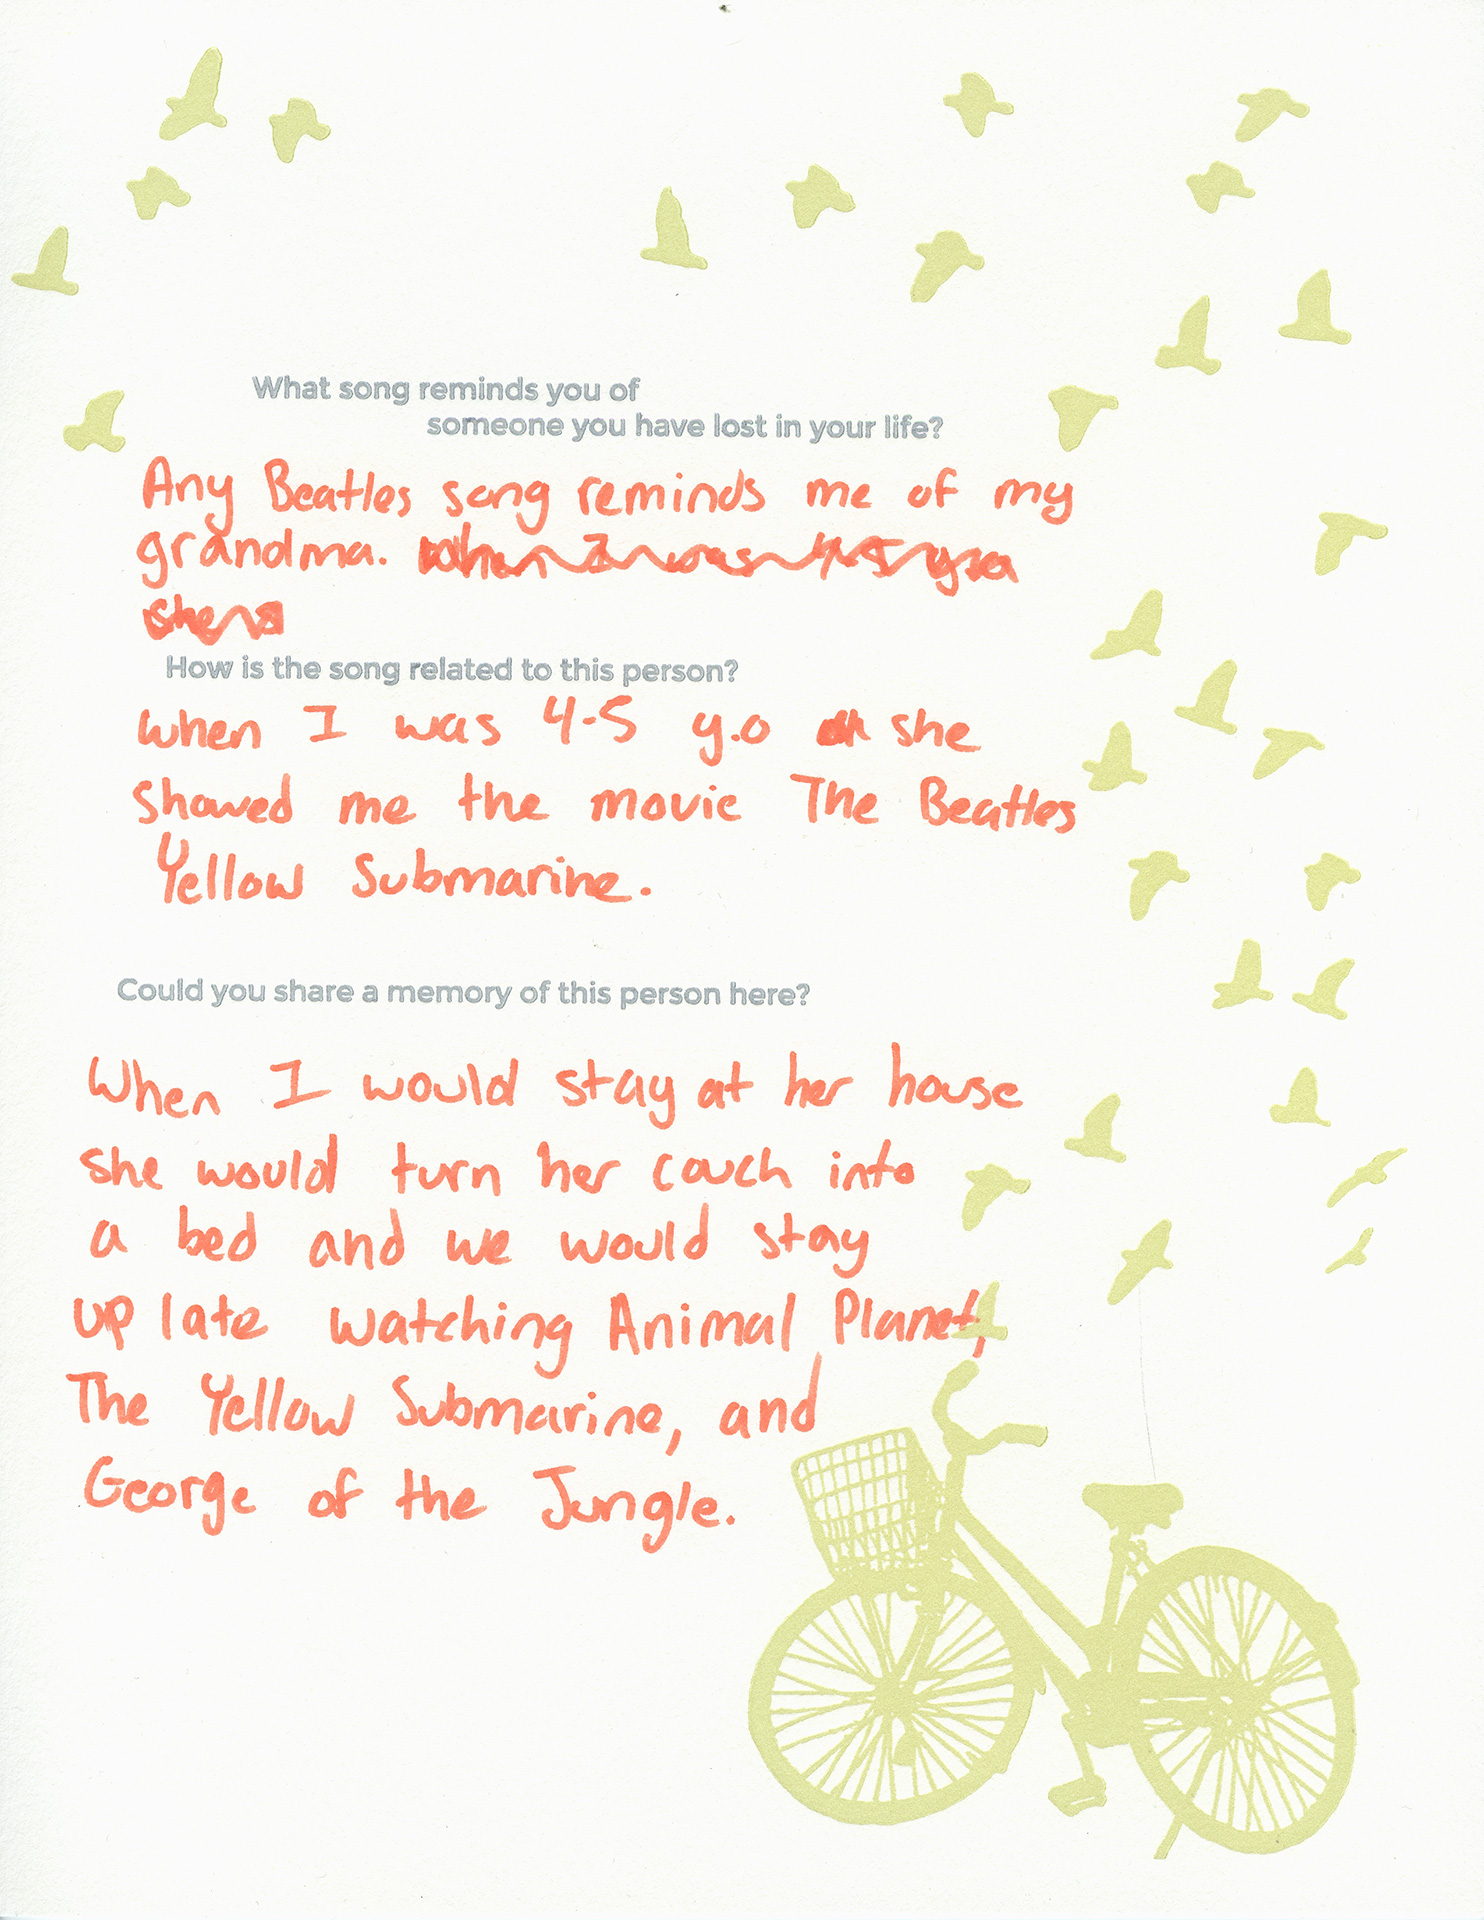 What song reminds you of
someone you have lost in your life?
Any Beatles song reminds me of my
grandma. When I was 4-5 y.o
she
How is the song related to this person?
When I was 4-5 y.o she
showed me the movie The Beatles
Yellow Submarine.
Could you share a memory of this person here?
When I would stay at her house
she would turn her couch into
a bed and we would stay
up late watching Animal Planet,
The Yellow Submarine, and
George of the Jungle.